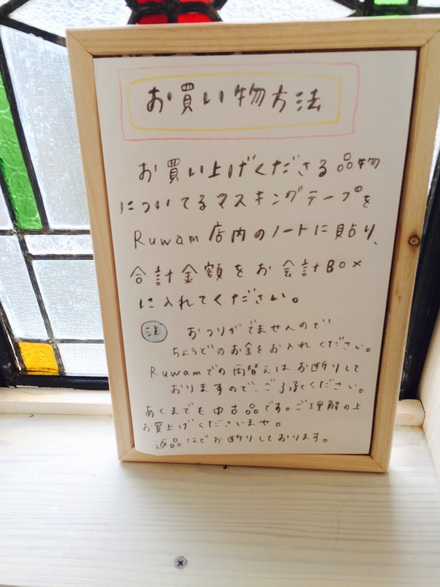 お買い物方法
お買い上げくださる品物
についてるマスキングテープを
Ruwam店内のノートに貼り、
合計金額をお会計BOX
に入れてください。
注 おつりがでませんので
ちょうどのお金をお入れください。
Ruwamでの両替えはお断りして
おりますので、ご了承ください。
あくまでも中古品です。ご理解の上
お買上げくださいませ。
返品などお断りしております。